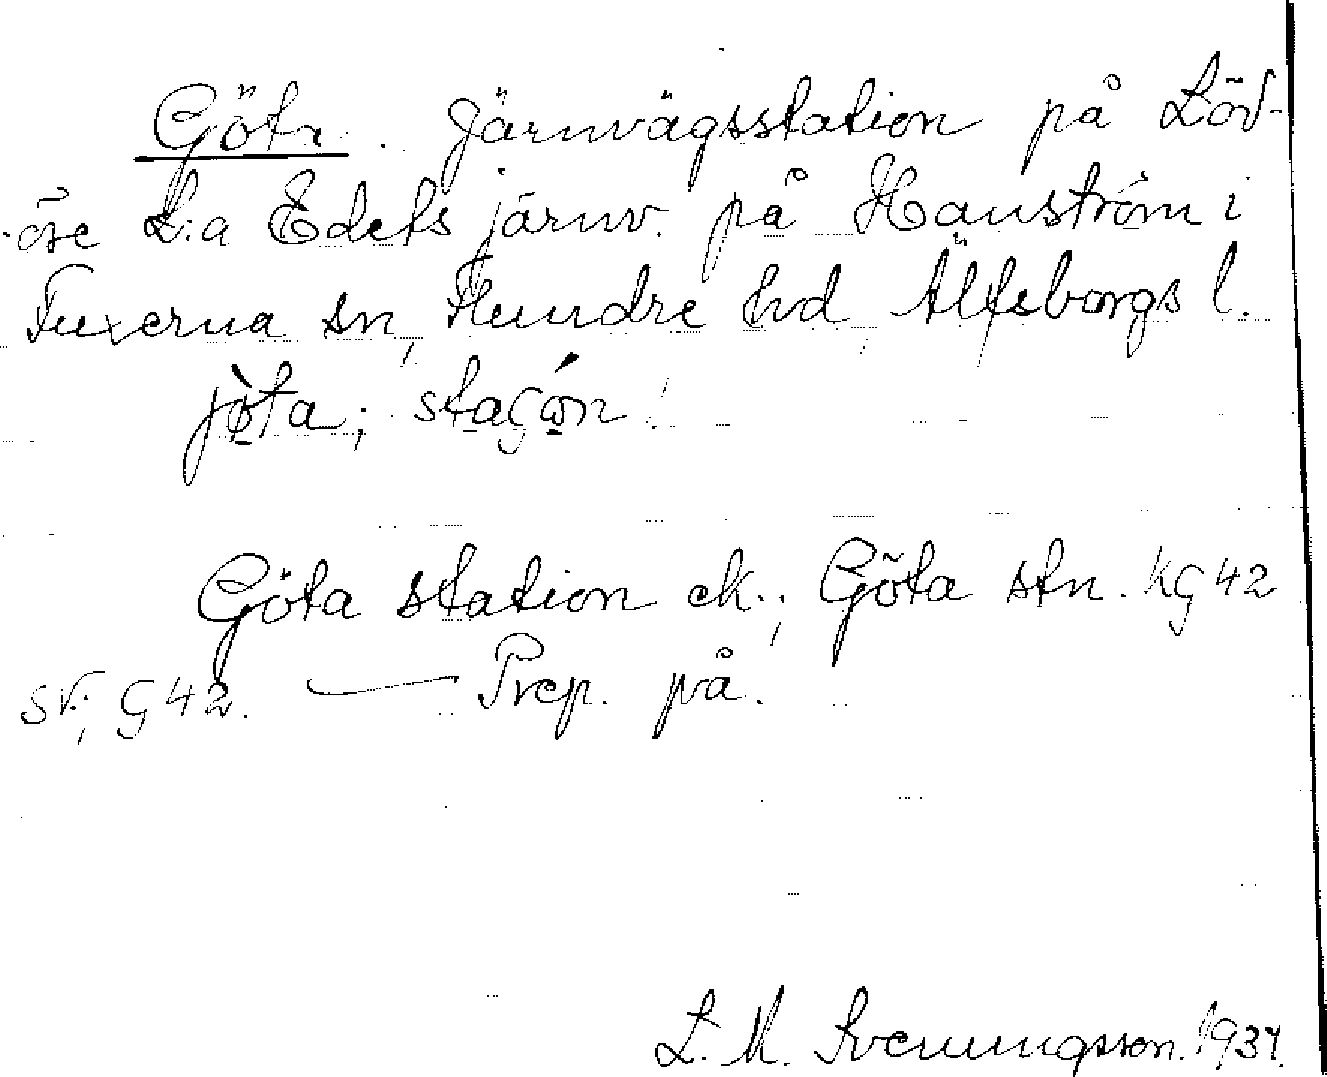 Göta. Järnvägsstation på Löd-
öse L:a Edets järnv. på Hanström i
Fuxerna sn, Flundre hd, Älfsborgs l.
jò̤ta; staʃó̤n.
Göta station ek.; Göta stn. KG 42
sv; G 42. — Prep. på.
L. M. Svenungsson. 1937.